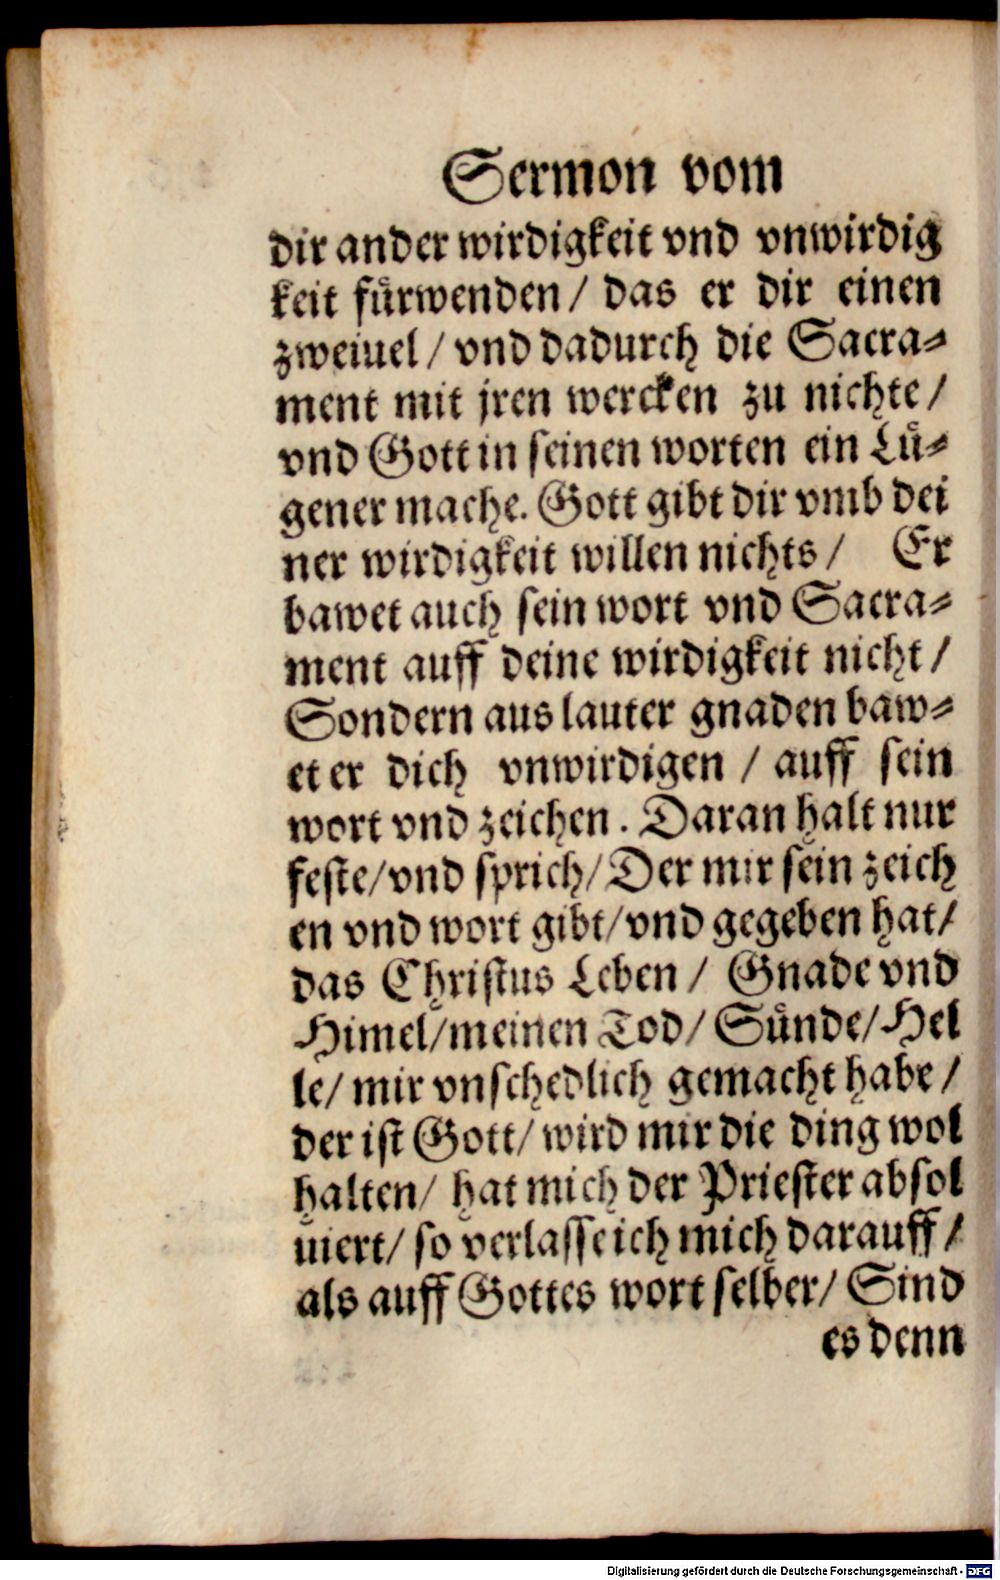 Sermon vom
dir ander wirdigkeit vnd vnwirdig
keit fürwenden / das er dir einen
zweiuel / vnd dadurch die Sacra⸗
ment mit jren wercken zu nichte /
vnd Gott in seinen worten ein Lü⸗
gener mache. Gott gibt dir vmb dei
ner wirdigkeit willen nichts / Er
bawet auch sein wort vnd Sacra⸗
ment auff deine wirdigkeit nicht /
Sondern aus lauter gnaden baw⸗
et er dich vnwirdigen / auff sein
wort vnd zeichen. Daran halt nur
feste / vnd sprich / Der mir sein zeich
en vnd wort gibt / vnd gegeben hat /
das Christus Leben / Gnade vnd
Himel / meinen Tod / Sünde / Hel
le / mir vnschedlich gemacht habe /
der ist Gott / wird mir die ding wol
halten / hat mich der Priester absol
uiert / so verlasse ich mich darauff /
als auff Gottes wort selber / Sind
es denn
Digitalisierung gefördert durch die Deutsche Forschungsgemeinschaft - DFG